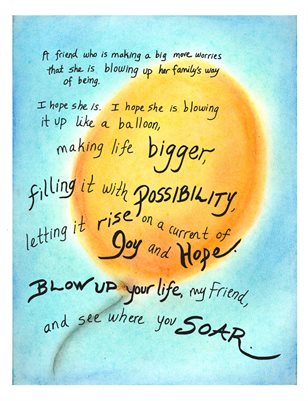 A friend who is making a big move worries
that she is blowing up her family's way
of being.
I hope she is. I hope she is blowing
it up like a balloon,
making life bigger,
filling it with POSSIBILITY,
letting it rise on a current of
Joy and Hope.
BLOW UP your life, my friend,
and see where you SOAR.